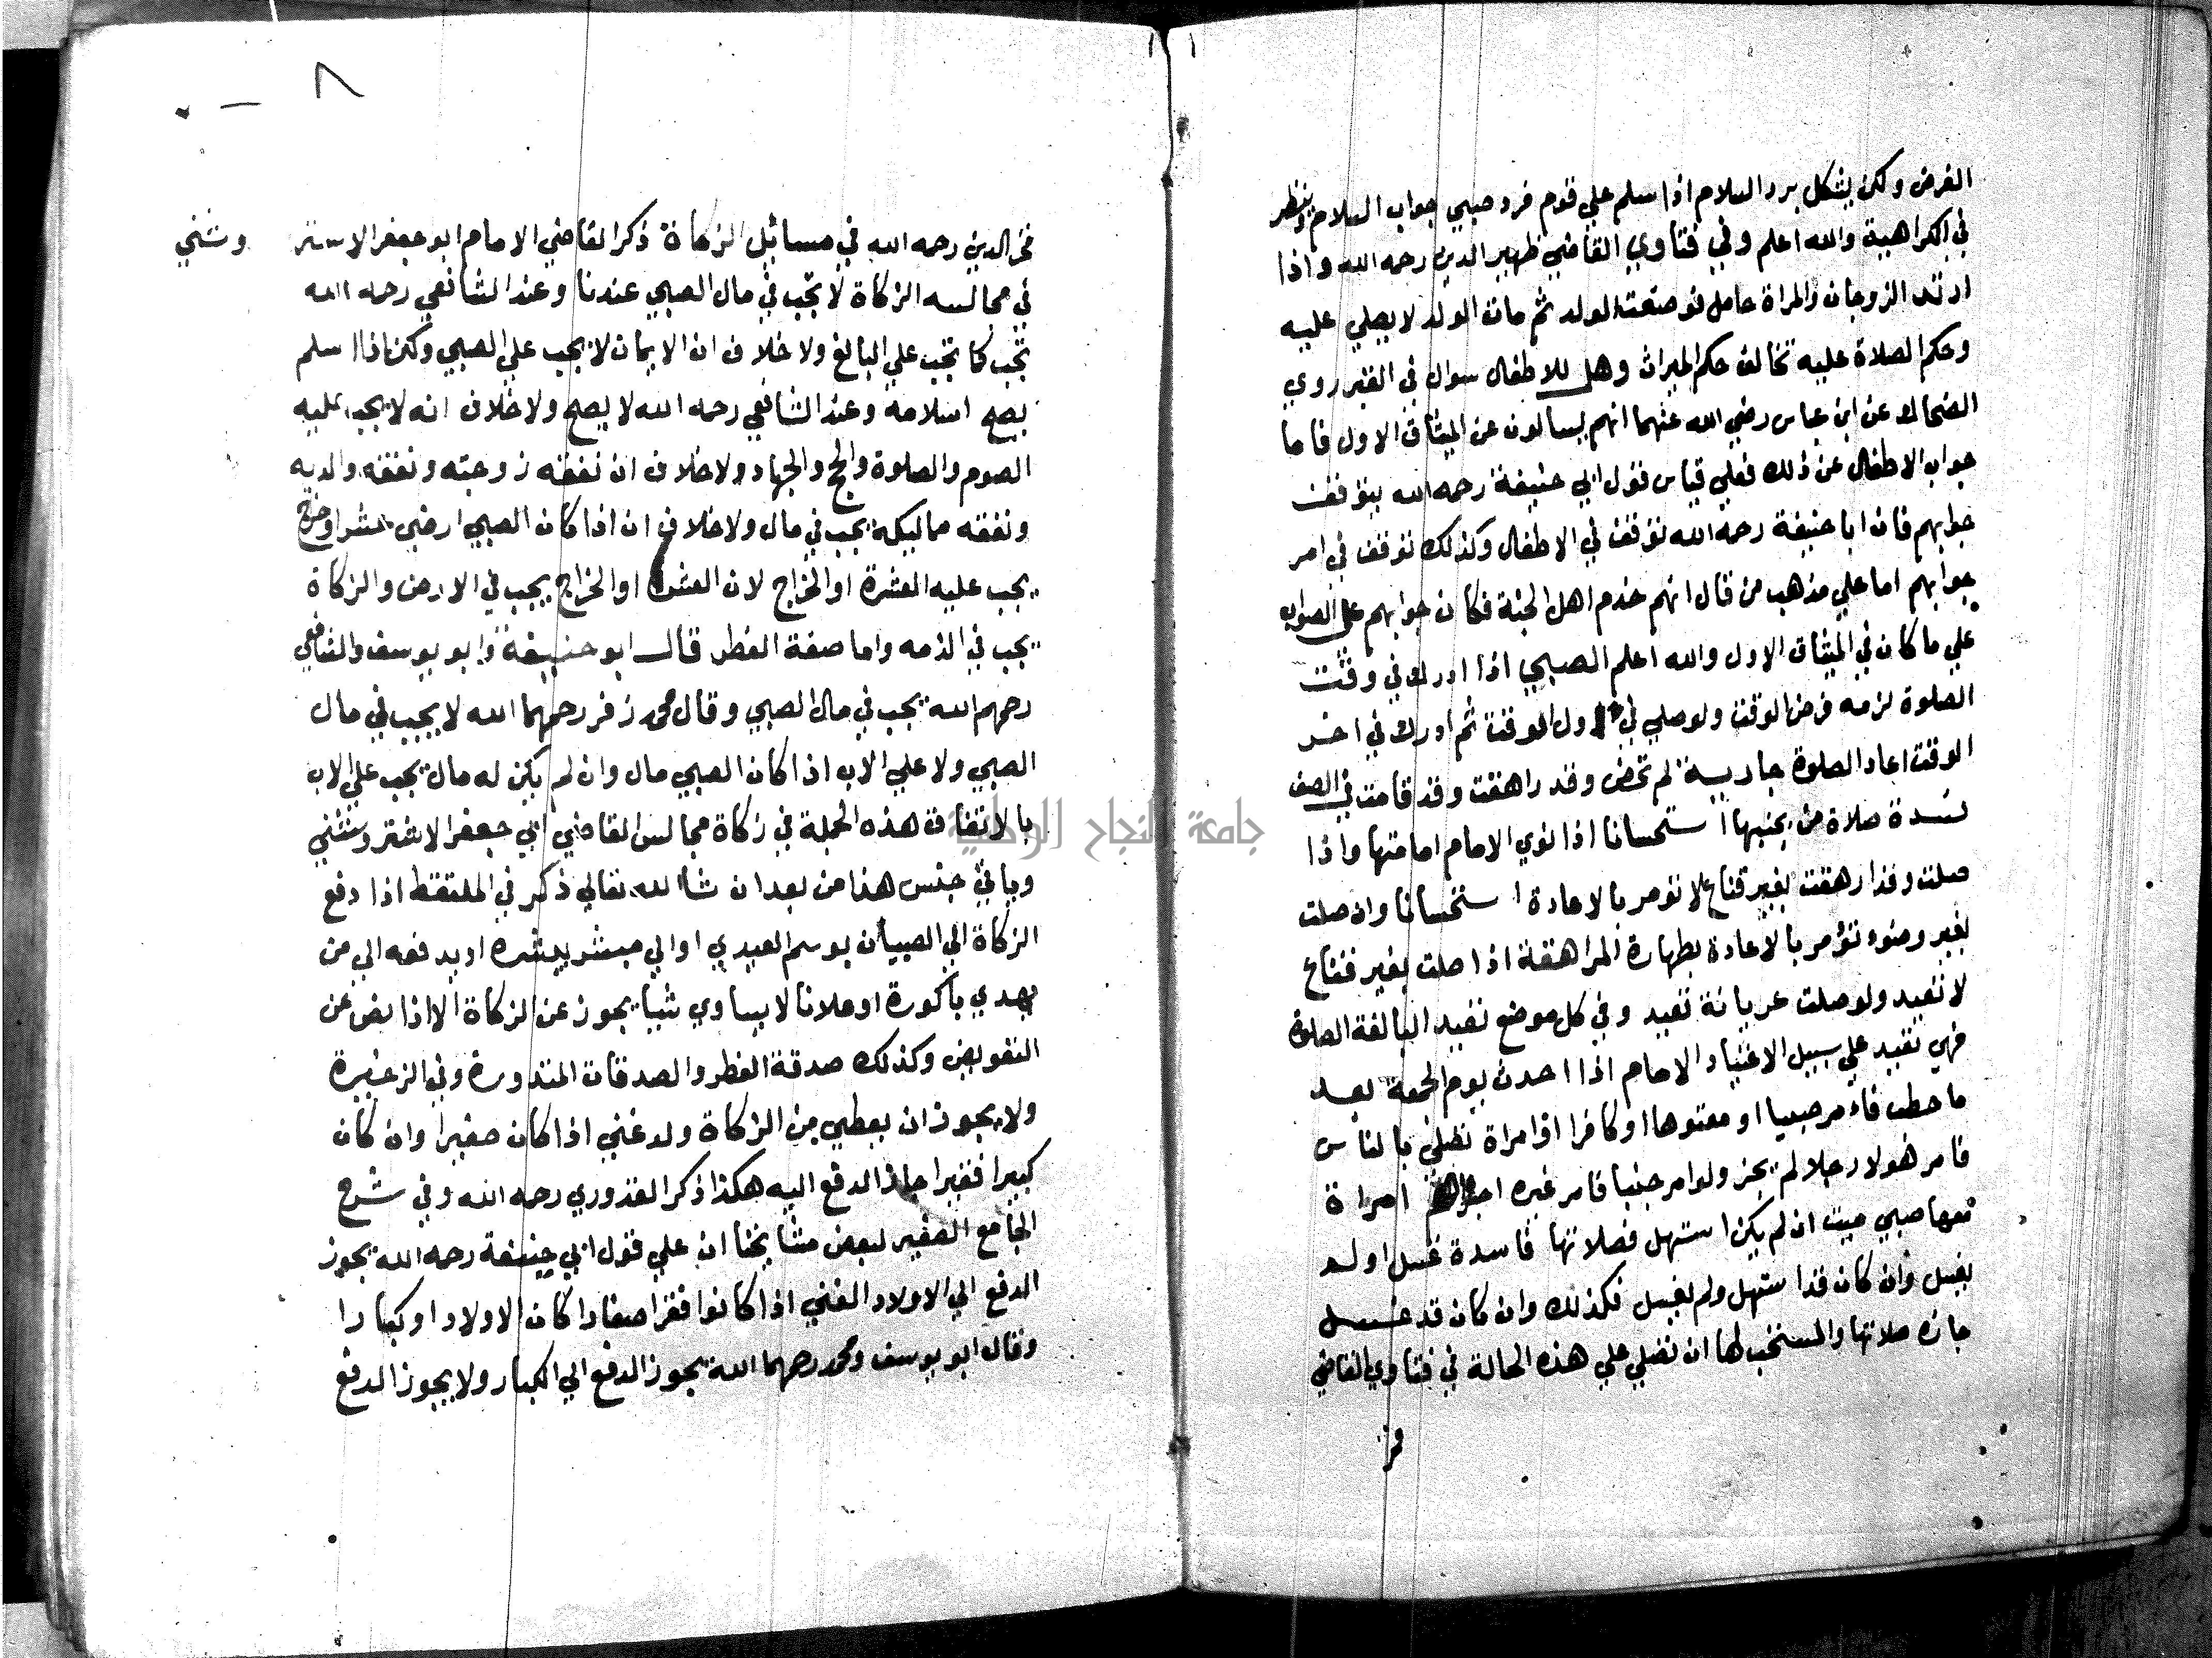 الفرض ولكن يشكل برد السلام اذا سلم علي قوم فرد صبي جواب السلام وينظر
في الكراهية والله اعلم وفي فتاوي القاضي ظهير الدين رحمه الله واذا
ارتد الزوجان والمراة حامل فوضعت الولد ثم مات الولد لا يصلي عليه
وحكم الصلاة عليه تخالف حكم الميراث وهل للاطفال سوال في القبر روي
الضحاك عن ابن عباس رضي الله عنهما انهم يسالون عن الميثاق الاول فاما
جواب الاطفال عن ذلك فعلي قياس قول ابي حنيفة رحمه الله يتوقف
جوابهم فان ابا حنيفة رحمه الله توقف في الاطفال وكذلك توقف في امر
جوابهم اما علي مذهب من قال انهم خدم اهل الجنة فكان جوابهم على الصواب
علي ما كان في الميثاق الاول والله اعلم الصبي اذا ادرك في وقت
الصلوة لزمه فرض الوقت ولو صلي في اول الوقت ثم ادرك في اخر
الوقت اعاد الصلوة جارية لم تحض وقد راهقت وقد قامت في الصف
صلاة من بجنبها استحسانا اذا نوي الامام امامتها واذا
صلت وقد ارهقت بغير قناع لا تومر بالاعادة استحسانا وان صلت
بغير وضوء تؤمر بالاعادة بطهارة المراهقة اذا صلت بغير قناع
لا تعيد ولو صلت عريانة تعيد وفي كل موضع تعيد البالغة الصلوة
فهي تعيد علي سبيل الاعتياد الامام اذا احدث يوم الجمعة بعد
ما خطب فامر صبيا او معتوها او كافرا او امراة تصلي بالناس
فامر هولا رجلا لم يجز ولو امر جنبا فامر غيره امراة
معها صبي ميت ان لم يكن استهل فصلاتها فاسدة غسل اولم
يغسل وان كان قد استهل ولم يغسل فكذلك وان كان قد غسل
جازه صلاتها والمستحب لها ان تصلي علي هذه الحالة في فتاوي القاضي
فخر
٨
فخر الدين رحمه الله في مسائل الزكاة ذكر القاضي الامام ابو جعفر الاستر وشني
في مجالسه الزكاة لا تجب في مال الصبي عندنا وعند الشافعي رحمه الله
تجب كما تجب علي البالغ ولا خلاف ان الايمان لا يجب علي الصبي ولكن اذا اسلم
يصح اسلامه وعند الشافعي رحمه الله لا يصح ولا خلاف انه لا يجب عليه
الصوم والصلوة والحج والجهاد ولا خلاف ان نفقه زوجته ونفقه والديه
ونفقه مماليكه يجب في مال ولا خلاف ان اذا كان الصبي ارضي عشر او خراج
يجب عليه العشرة او الخراج لان العشر او الخراج يجب في الارض والزكاة
يجب في الذمه واما صفة الفطر قال ابو حنيفة وابو يوسف والشافعي
رحمهم الله يجب في مال الصبي وقال محمد زفر رحمهما الله لا يجب في مال
الصبي ولا علي الاب اذا كان الصبي مال وان لم يكن له مال يجب علي الاب
بالاتفاق هذه الجملة في زكاة مجالس القاضي ابي جعفر الاشتر وشني
وياتي جنس هذا من بعد ان شا الله تعالي ذكر في الملتقط اذا دفع
الزكاة الي الصبيان بوسم العيدي او الي مبشر يبشره او يدفعه الي من
يهدي باكورة او علانا لا يساوي شيا يجوز عن الزكاة الا اذا نص عن
التعويض وكذلك صدقة الفطر والصدقات المنذورة وفي الزخيرة
ولا يجوز ان يعطي من الزكاة ولد غني اذا كان صغيرا وان كان
كبيرا فقيرا جاز الدفع اليه هكذا ذكر القدوري رحمه الله وفي شرح
الجامع الصغير لبعض مشايخنا ان علي قول ابي حنيفة رحمه الله يجوز
الدفع الي الاولاد الغني اذا كانوا فقرا صغارا كان الاولاد او كبارا
وقال ابو يوسف ومحمد رحمهما الله يجوز الدفع الي الكبار ولا يجوز الدفع
جامعة النجاح الوطنية